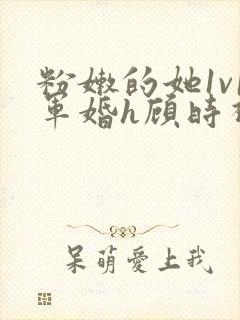 粉嫩的她1v1
军婚h顾时
呆萌愛上我